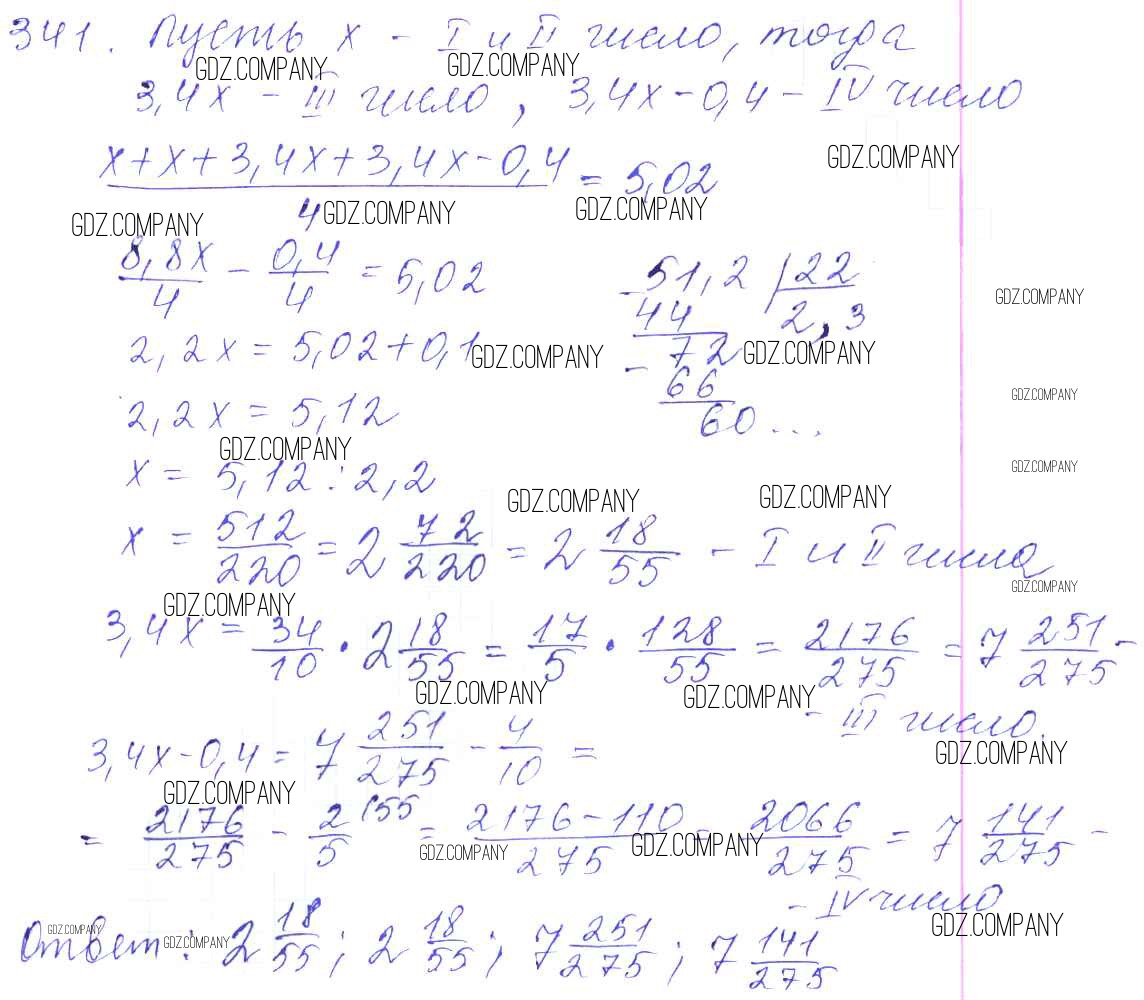 341. Пусть x - I и II число, тогда
GDZ.COMPANY GDZ.COMPANY
3,4x - III число, 3,4x-0,4 - IV число
(x+x+3,4x+3,4x-0,4)/4 = 5,02
GDZ.COMPANY
GDZ.COMPANY GDZ.COMPANY GDZ.COMPANY
8,8x/4 - 0,4/4 = 5,02
51,2 | 22
GDZ.COMPANY
44 2,3
2,2x = 5,02+0,1
GDZ.COMPANY GDZ.COMPANY
- 72
66
GDZ.COMPANY
60...
2,2x = 5,12
GDZ.COMPANY
x = 5,12 : 2,2
GDZ.COMPANY
GDZ.COMPANY GDZ.COMPANY
x = 512/220 = 2 72/220 = 2 18/55 - I и II числа
GDZ.COMPANY
GDZ.COMPANY
3,4x = 34/10 • 2 18/55 = 17/5 • 128/55 = 2176/275 = 7 251/275 -
GDZ.COMPANY GDZ.COMPANY
- III число.
3,4x-0,4 = 7 251/275 - 4/10 =
GDZ.COMPANY
GDZ.COMPANY
= 2176/275 - 2/5 (55 = (2176-110)/275 = 2066/275 = 7 141/275 -
GDZ.COMPANY GDZ.COMPANY
- IV число
GDZ.COMPANY
Ответ: 2 18/55; 2 18/55; 7 251/275; 7 141/275
GDZ.COMPANY GDZ.COMPANY